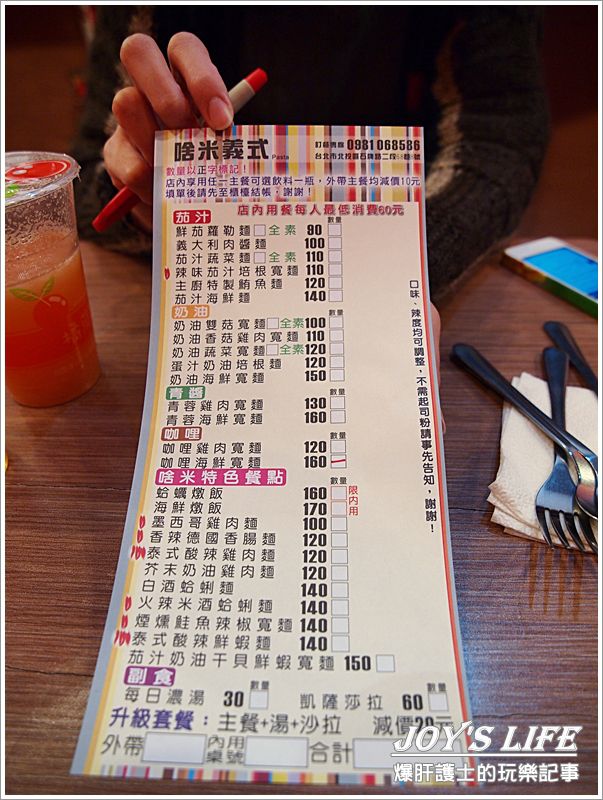 啥米義式 Pasta
訂餐專線 0981 068586
台北市北投區石牌路二段58巷8號
數量以正字標記！
店內享用任一主餐可選飲料一瓶，外帶主餐均減價10元
填單後請先至櫃檯結帳，謝謝！
店內用餐每人最低消費60元
茄汁 數量
鮮茄蘿勒麵 全素 90
義大利肉醬麵 100
茄汁蔬菜麵 全素 110
辣味茄汁培根寬麵 110
主廚特製鮪魚麵 120
茄汁海鮮麵 140
奶油 數量
奶油雙菇寬麵 全素 100
奶油香菇雞肉寬麵 110
奶油蔬菜寬麵 全素 120
蛋汁奶油培根麵 120
奶油海鮮寬麵 150
青醬 數量
青蓉雞肉寬麵 130
青蓉海鮮寬麵 160
咖哩 數量
咖哩雞肉寬麵 120
咖哩海鮮寬麵 160
啥米特色餐點 數量
蛤蠣燉飯 160
海鮮燉飯 170
限內用
墨西哥雞肉麵 100
香辣德國香腸麵 120
泰式酸辣雞肉麵 120
芥末奶油雞肉麵 120
白酒蛤蜊麵 140
火辣米酒蛤蜊麵 140
煙燻鮭魚辣椒寬麵 140
泰式酸辣鮮蝦麵 140
茄汁奶油干貝鮮蝦寬麵 150
副食
每日濃湯 30 數量
凱薩莎拉 60 數量
升級套餐：主餐+湯+沙拉 減價20元
外帶 內用桌號 合計
口味、辣度均可調整，不需起司粉請事先告知，謝謝！
JOY'S LIFE
爆肝護士的玩樂記事